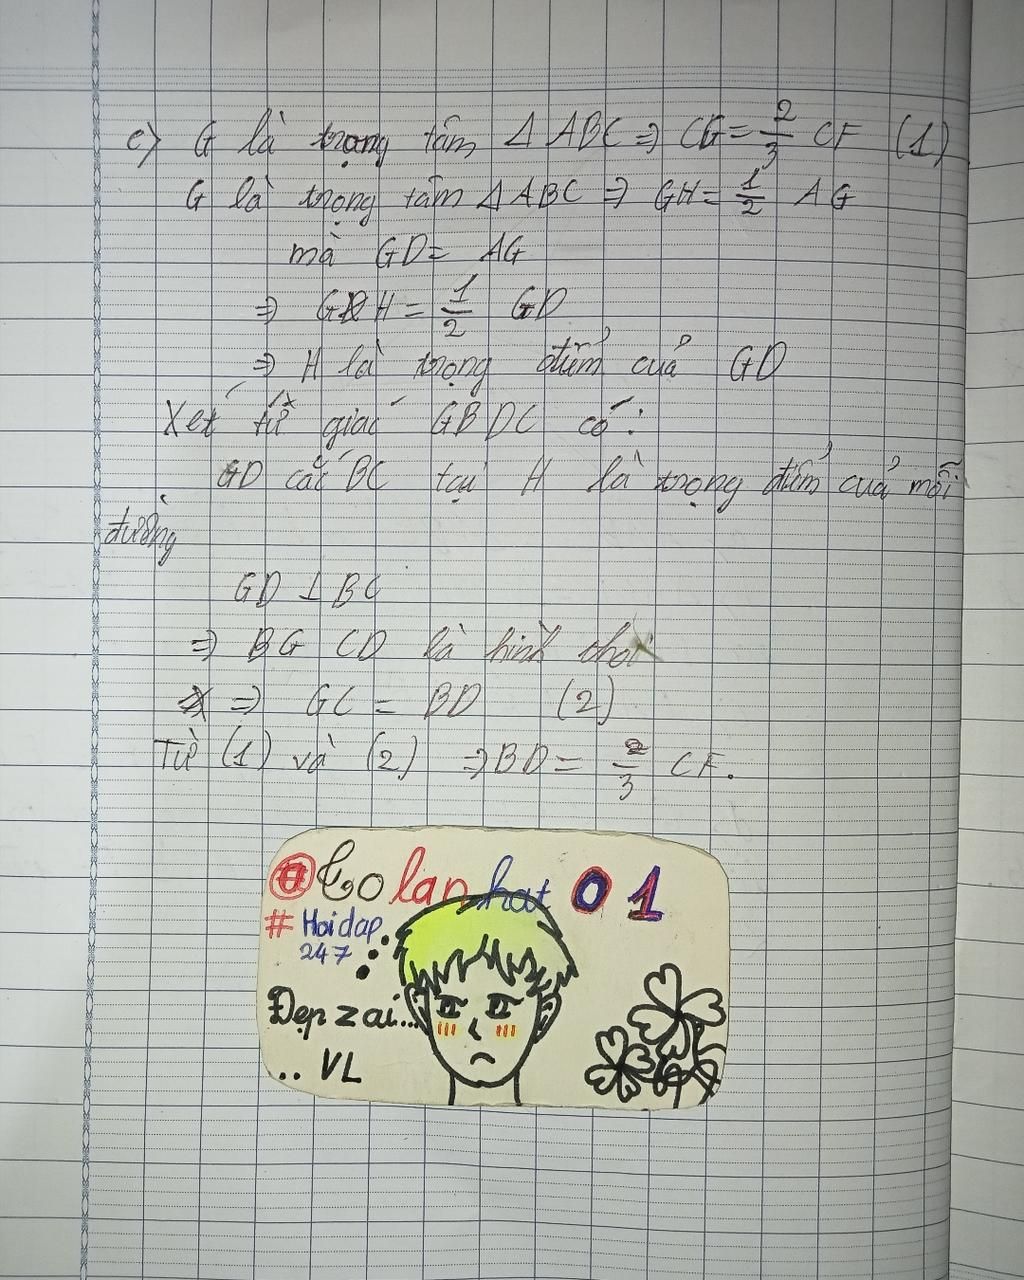 c) G là trọng tâm Δ ABC ⇒ CG = 2/3 CF (1)
G là trọng tâm Δ ABC ⇒ GH = 1/2 AG
mà GD = AG
⇒ GH = 1/2 GD
⇒ H là trọng điểm của GD
Xét tứ giác GBDC có:
GD cắt BC tại H là trọng điểm của mỗi
đường
GD ⊥ BC
⇒ BGCD là hình thoi
⇒ GC = BD (2)
Từ (1) và (2) ⇒ BD = 2/3 CF.
lanhat 01
# Hoidap
247
Đẹp zai...
.. VL